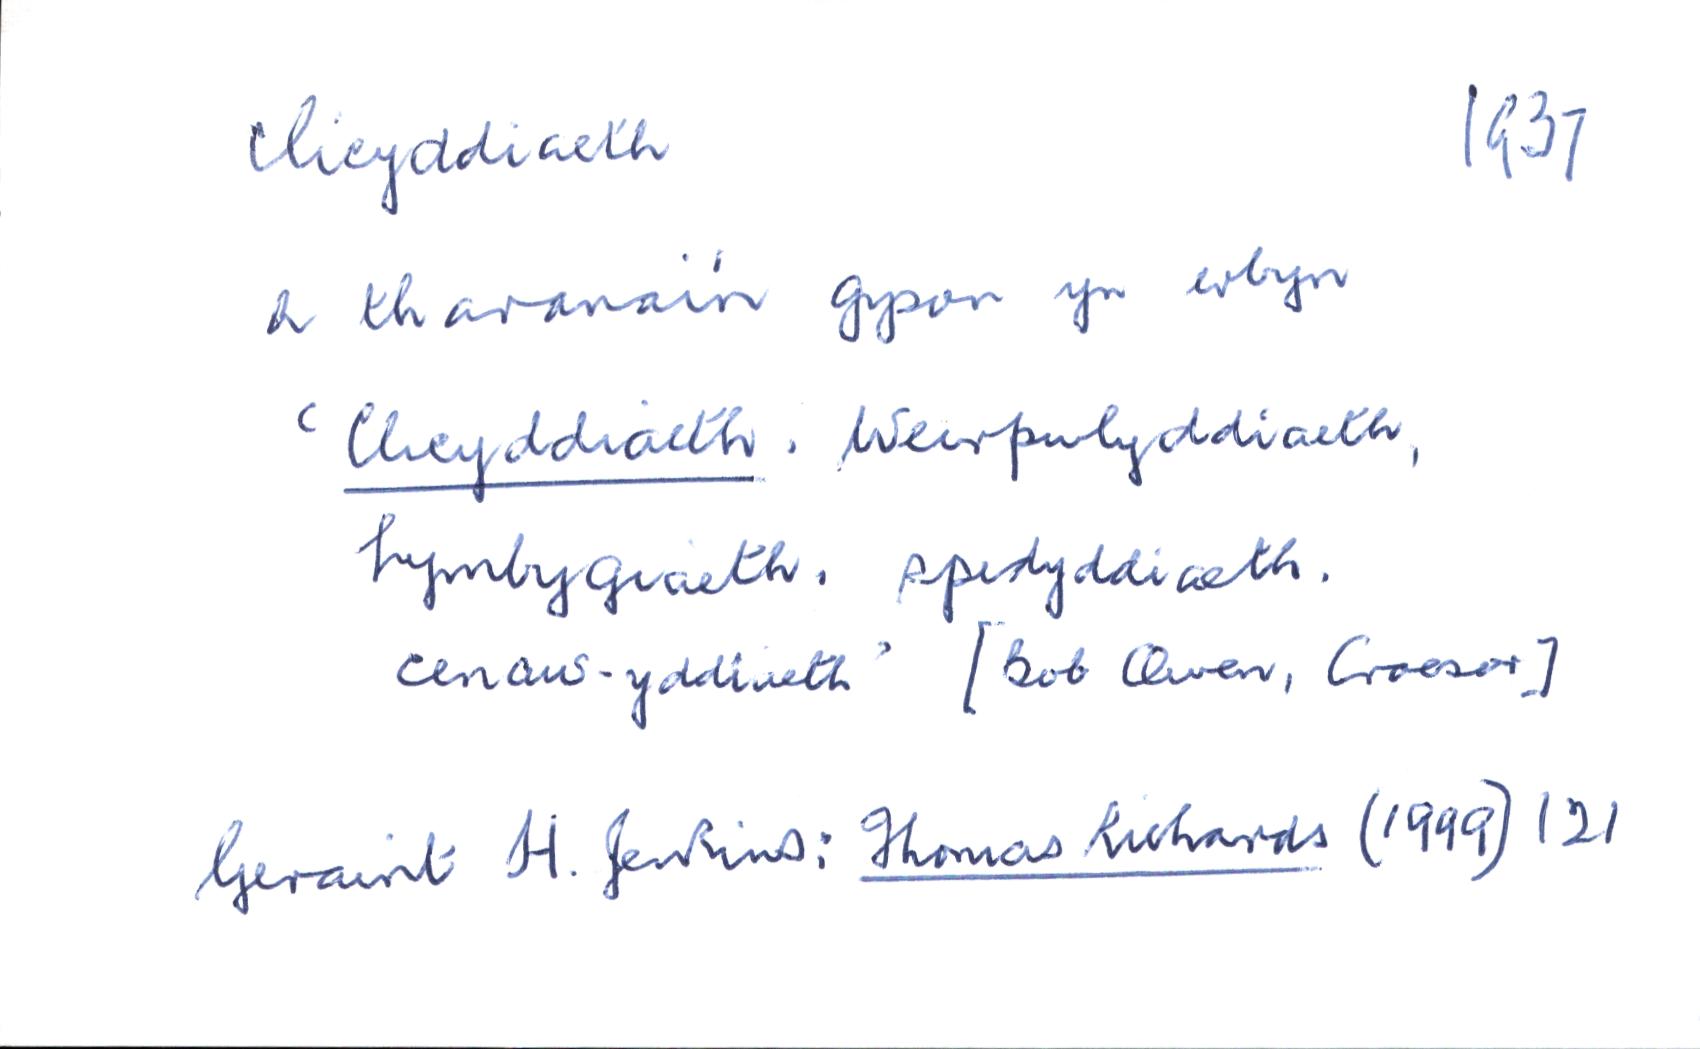 clicyddiaeth 1937
a tharanai'n gyson yn erbyn
‘Clicyddiaeth, Weirpwlyddiaeth,
hymbygiaeth, spidyddiaeth,
cenaw-yddiaeth’ [Bob Owen, Croesor]
Geraint H. Jenkins: Thomas Richards (1999) 121